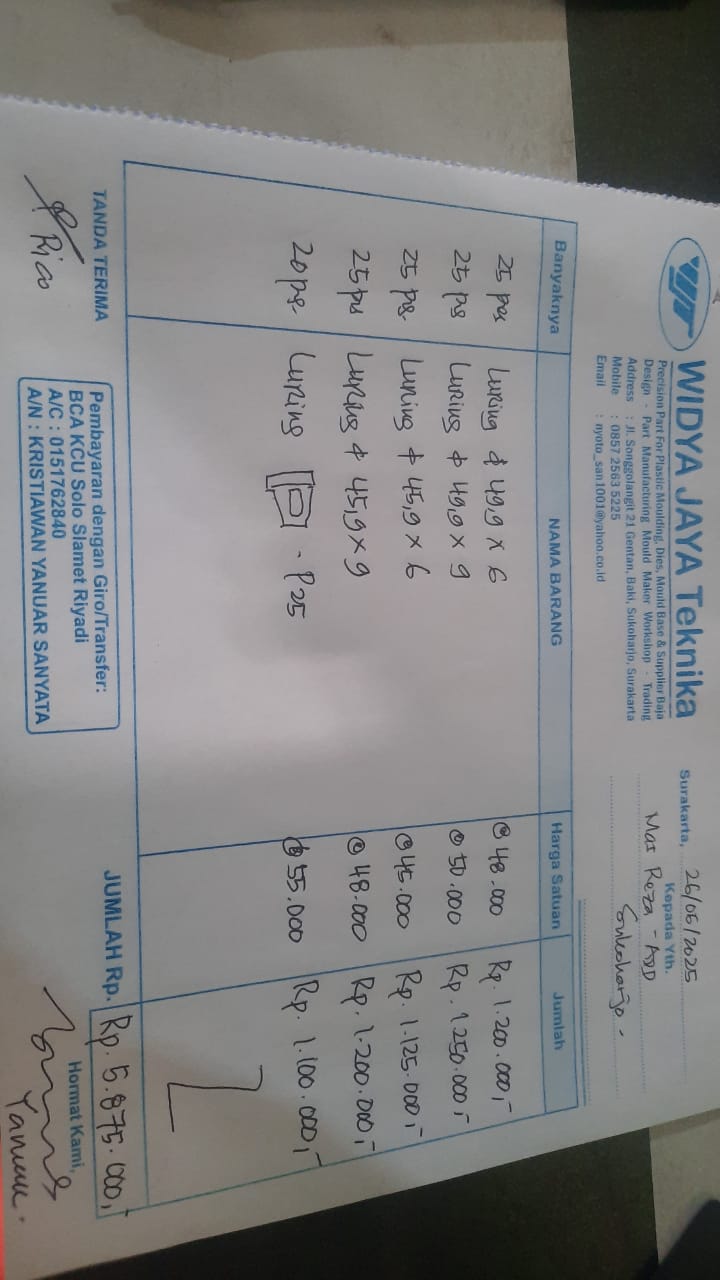 WJT
WIDYA JAYA Teknika
Precision Part For Plastic Moulding, Dies, Mould Base & Supplier Baja
Design - Part Manufacturing Mould Maker Workshop - Trading
Address : Jl. Songgolangit 21 Gentan, Baki, Sukoharjo, Surakarta
Mobile : 0857 2563 5225
Email : nyoto_san1001@yahoo.co.id
Surakarta, 26/05/2025
Kepada Yth.
Mas Reza - ADD
Sukoharjo -
Banyaknya NAMA BARANG Harga Satuan Jumlah
25 pcs Luring ϕ 49,9 x 6 @ 48.000 Rp. 1.200.000,-
25 ps Luring ϕ 49,9 x 9 @ 50.000 Rp. 1.250.000,-
25 ps. Luring ϕ 45,9 x 6 @ 45.000 Rp. 1.125.000,-
25 ps Luring ϕ 45,9 x 9 @ 48.000 Rp. 1.200.000,-
20 ps. Luring - P25 @ 55.000 Rp. 1.100.000,-
JUMLAH Rp. Rp. 5.875.000,-
TANDA TERIMA
Rico
Pembayaran dengan Giro/Transfer:
BCA KCU Solo Slamet Riyadi
A/C : 0151762840
A/N : KRISTIAWAN YANUAR SANYATA
Hormat Kami,